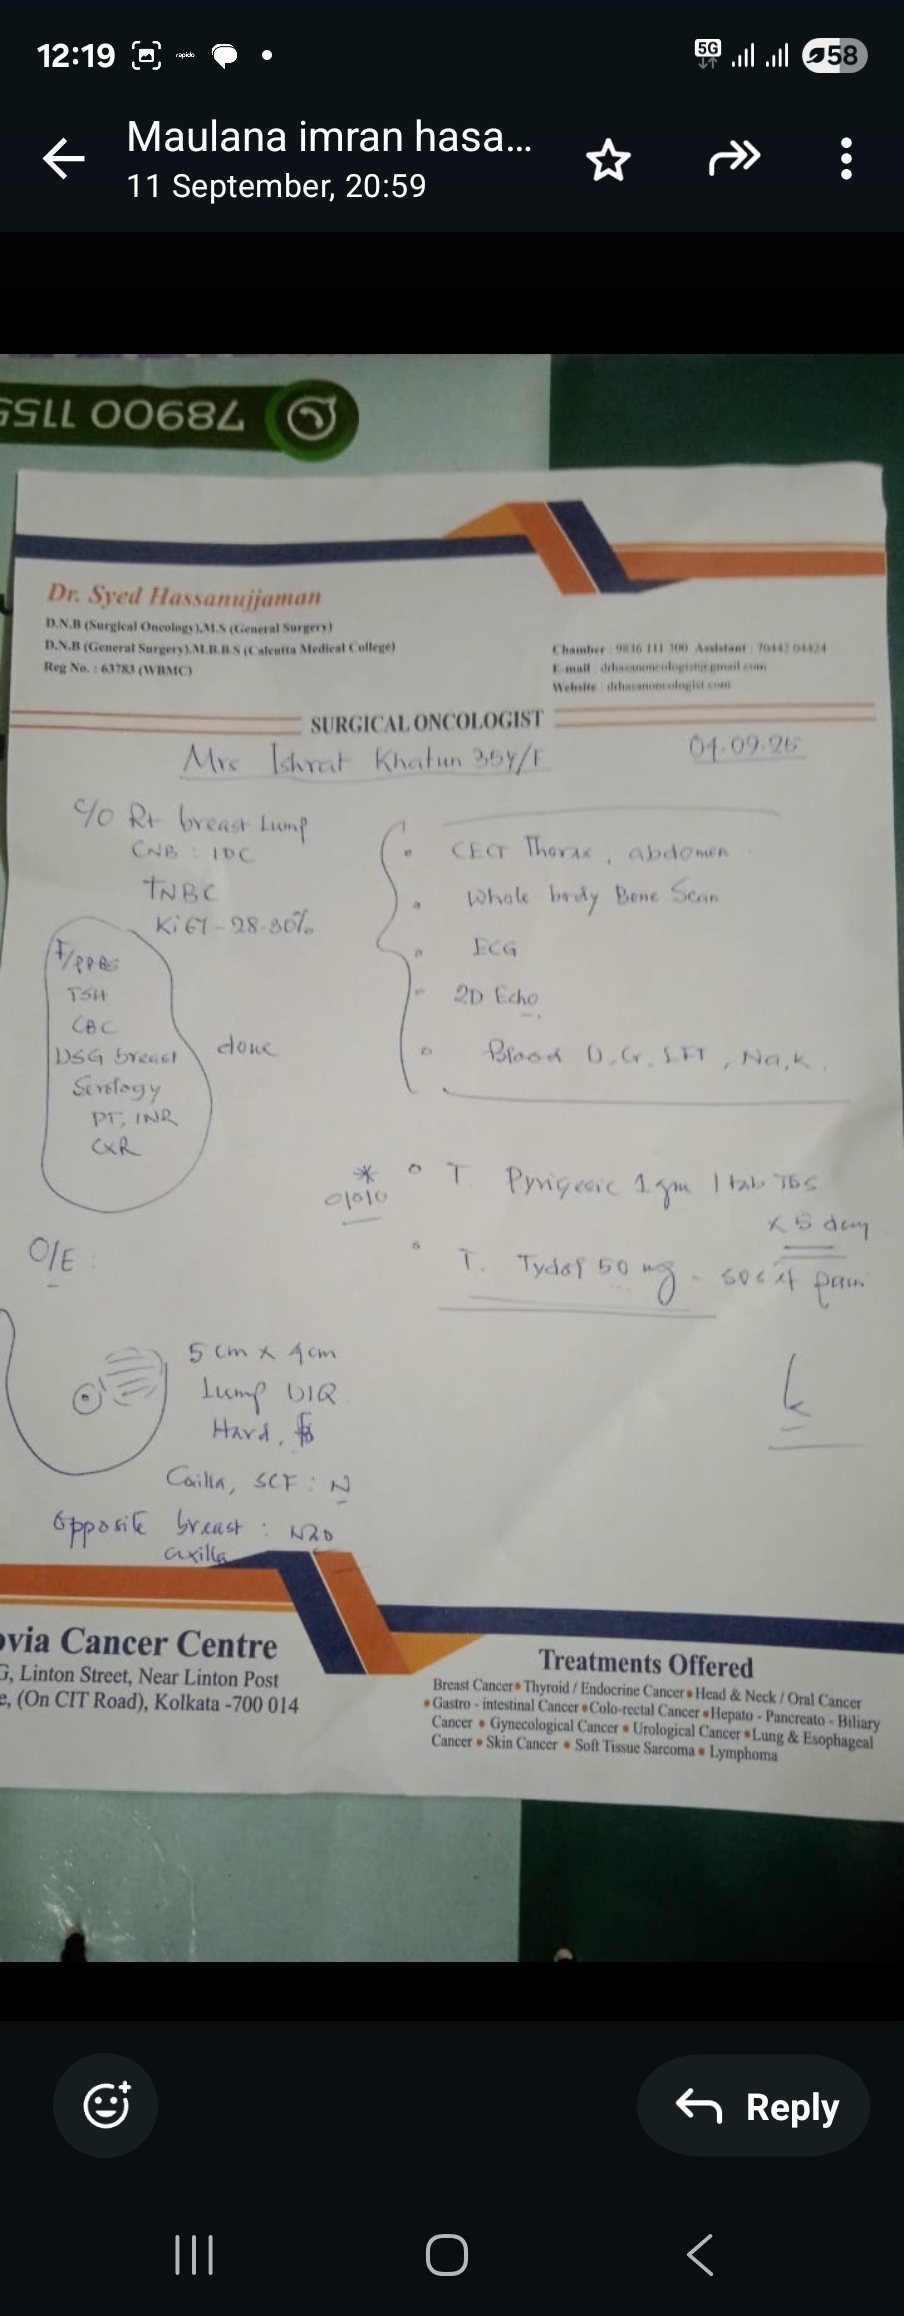 12:19
rapido
5G
58
Maulana imran hasa...
11 September, 20:59
78900 1155
Dr. Syed Hassanujjaman
D.N.B (Surgical Oncology),M.S (General Surgery)
D.N.B (General Surgery),M.B.B.S (Calcutta Medical College)
Reg No. : 63783 (WBMC)
Chamber : 9836 111 300 Assistant : 70443 04424
E-mail : drhasanoncologist@gmail.com
Website : drhasanoncologist.com
SURGICAL ONCOLOGIST
Mrs Ishrat Khatun 35Y/F
09.25
C/O Rt breast Lump
CNB : IDC
TNBC
Ki 67 - 28-30%
F/PPBS
TSH
CBC
USG breast
Serology
PT, INR
CXR
done
CECT Thorax, abdomen
Whole body Bone Scan
ECG
2D Echo
Blood U, Cr, LFT, Na, K.
* T. Pyrigesic 1gm 1 tab TDS
x 5 day
T. Tydol 50 mg - SOS if pain
O/E :
5 cm x 4cm
Lump UIQ
Hard,
axilla, SCF : N
Opposite breast : NAD
axilla
ovia Cancer Centre
G, Linton Street, Near Linton Post
e, (On CIT Road), Kolkata -700 014
Treatments Offered
Breast Cancer • Thyroid / Endocrine Cancer • Head & Neck / Oral Cancer
• Gastro - intestinal Cancer • Colo-rectal Cancer • Hepato - Pancreato - Biliary
Cancer • Gynecological Cancer • Urological Cancer • Lung & Esophageal
Cancer • Skin Cancer • Soft Tissue Sarcoma • Lymphoma
Reply